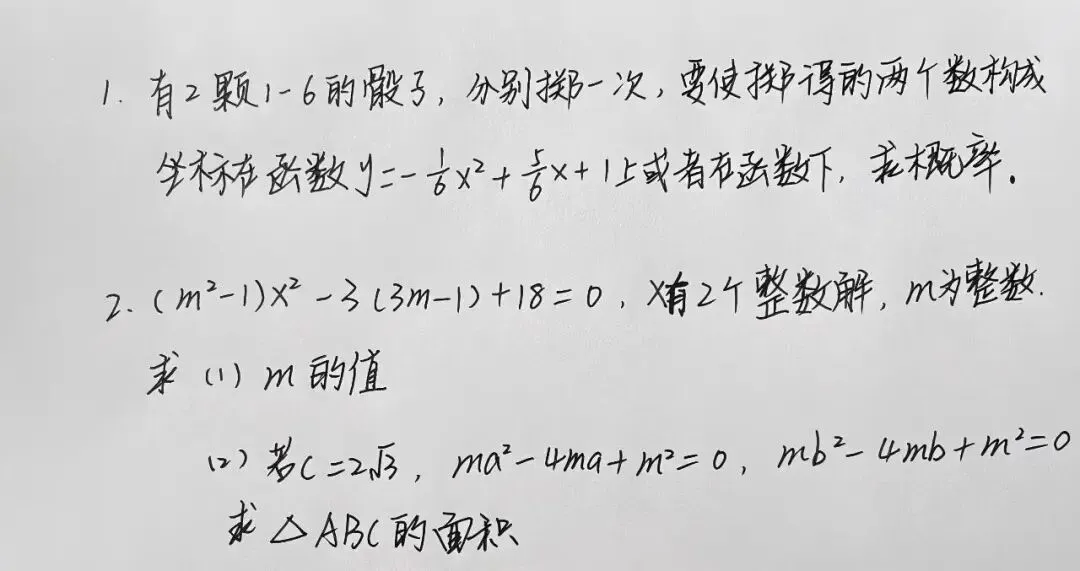 1. 有2颗1-6的骰子, 分别掷一次, 要使掷得的两个数构成
坐标在函数y=-1/6x²+5/6x+1上或者在函数下, 求概率.
2. (m²-1)x²-3(3m-1)+18=0, x有2个整数解, m为整数.
求 (1) m的值
(2) 若c=2√3, ma²-4ma+m²=0, mb²-4mb+m²=0
求△ABC的面积